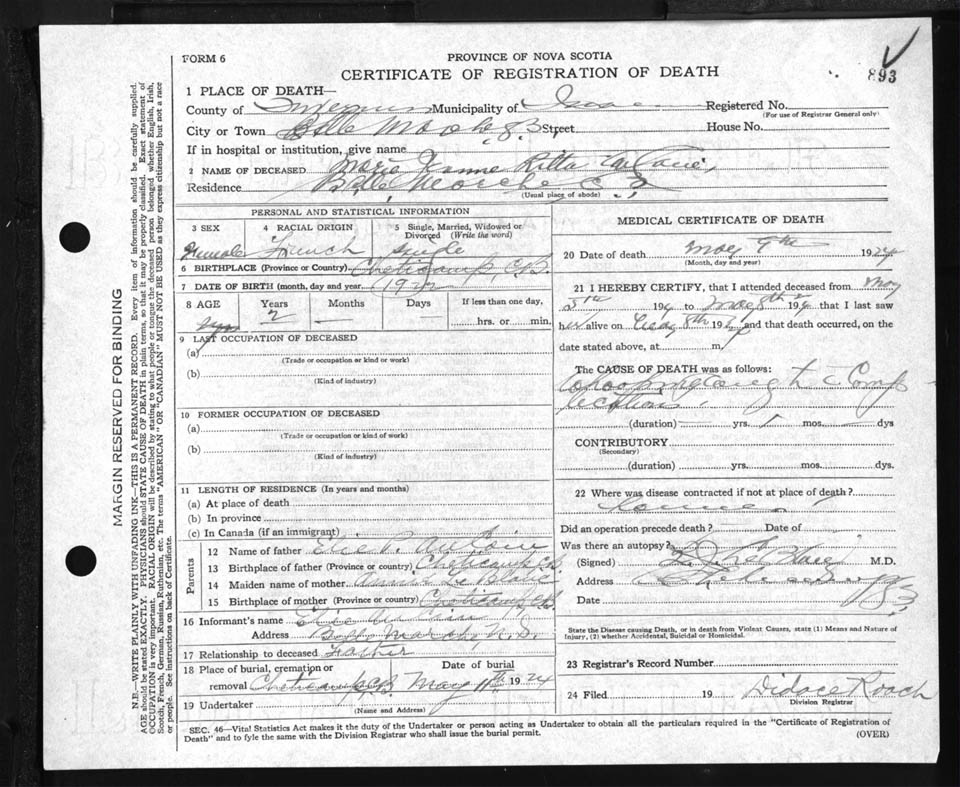 FORM 6
PROVINCE OF NOVA SCOTIA
CERTIFICATE OF REGISTRATION OF DEATH
893
1 PLACE OF DEATH—
County of Municipality of Registered No.
(For use of Registrar General only)
City or Town Belle Street House No.
If in hospital or institution, give name
2 NAME OF DECEASED Marie Jeanne Ritta
Residence Belle C. B.
(Usual place of abode)
PERSONAL AND STATISTICAL INFORMATION
3 SEX 4 RACIAL ORIGIN 5 Single, Married, Widowed or Divorced (Write the word)
Female French single
6 BIRTHPLACE (Province or Country) Cheticamp C.B.
7 DATE OF BIRTH (month, day and year) 1922
8 AGE Years Months Days If less than one day,
2 — — hrs. or min.
9 LAST OCCUPATION OF DECEASED
(a)
(Trade or occupation or kind or work)
(b)
(Kind of industry)
10 FORMER OCCUPATION OF DECEASED
(a)
(Trade or occupation or kind of work)
(b)
(Kind of industry)
11 LENGTH OF RESIDENCE (In years and months)
(a) At place of death
(b) In province
(c) In Canada (if an immigrant)
Parents
12 Name of father Elie P.
13 Birthplace of father (Province or country) Cheticamp C.B.
14 Maiden name of mother Annie Le Blanc
15 Birthplace of mother (Province or country) Cheticamp C.B.
16 Informant's name Elie
Address Belle Marche, N.S.
17 Relationship to deceased Father
18 Place of burial, cremation or removal Cheticamp C.B. Date of burial May 11th 1924
19 Undertaker
(Name and Address)
MEDICAL CERTIFICATE OF DEATH
20 Date of death May 9th 1924
(Month, day and year)
21 I HEREBY CERTIFY, that I attended deceased from May
5th 1924 to May 8th 1924 that I last saw
her alive on May 8th 1924 and that death occurred, on the
date stated above, at m
The CAUSE OF DEATH was as follows:
Whooping Cough & Comp
lications
(duration) — yrs. 1 mos. — dys
CONTRIBUTORY
(Secondary)
(duration) yrs. mos. dys.
22 Where was disease contracted if not at place of death?
Did an operation precede death? Date of
Was there an autopsy?
(Signed) M.D.
Address Cheticamp
Date
State the Disease causing Death, or in death from Violent Causes, state (1) Means and Nature of
Injury, (2) whether Accidental, Suicidal or Homicidal.
23 Registrar's Record Number
24 Filed 19 Didace Roach
Division Registrar
SEC. 46—Vital Statistics Act makes it the duty of the Undertaker or person acting as Undertaker to obtain all the particulars required in the "Certificate of Registration of
Death" and to fyle the same with the Division Registrar who shall issue the burial permit.
(OVER)
MARGIN RESERVED FOR BINDING
N.B.—WRITE PLAINLY WITH UNFADING INK—THIS IS A PERMANENT RECORD. Every item of information should be carefully supplied.
AGE should be stated EXACTLY. PHYSICIANS should STATE CAUSE OF DEATH in plain terms, so that it may be properly classified. Exact statement of
OCCUPATION is very important. RACIAL ORIGIN will be described by stating to what people or tongue the deceased person belonged whether English, Irish,
Scotch, French, German, Russian, Ruthenian, etc. The terms "AMERICAN" OR "CANADIAN" MUST NOT BE USED as they express citizenship but not a race
or people. See instructions on back of Certificate.